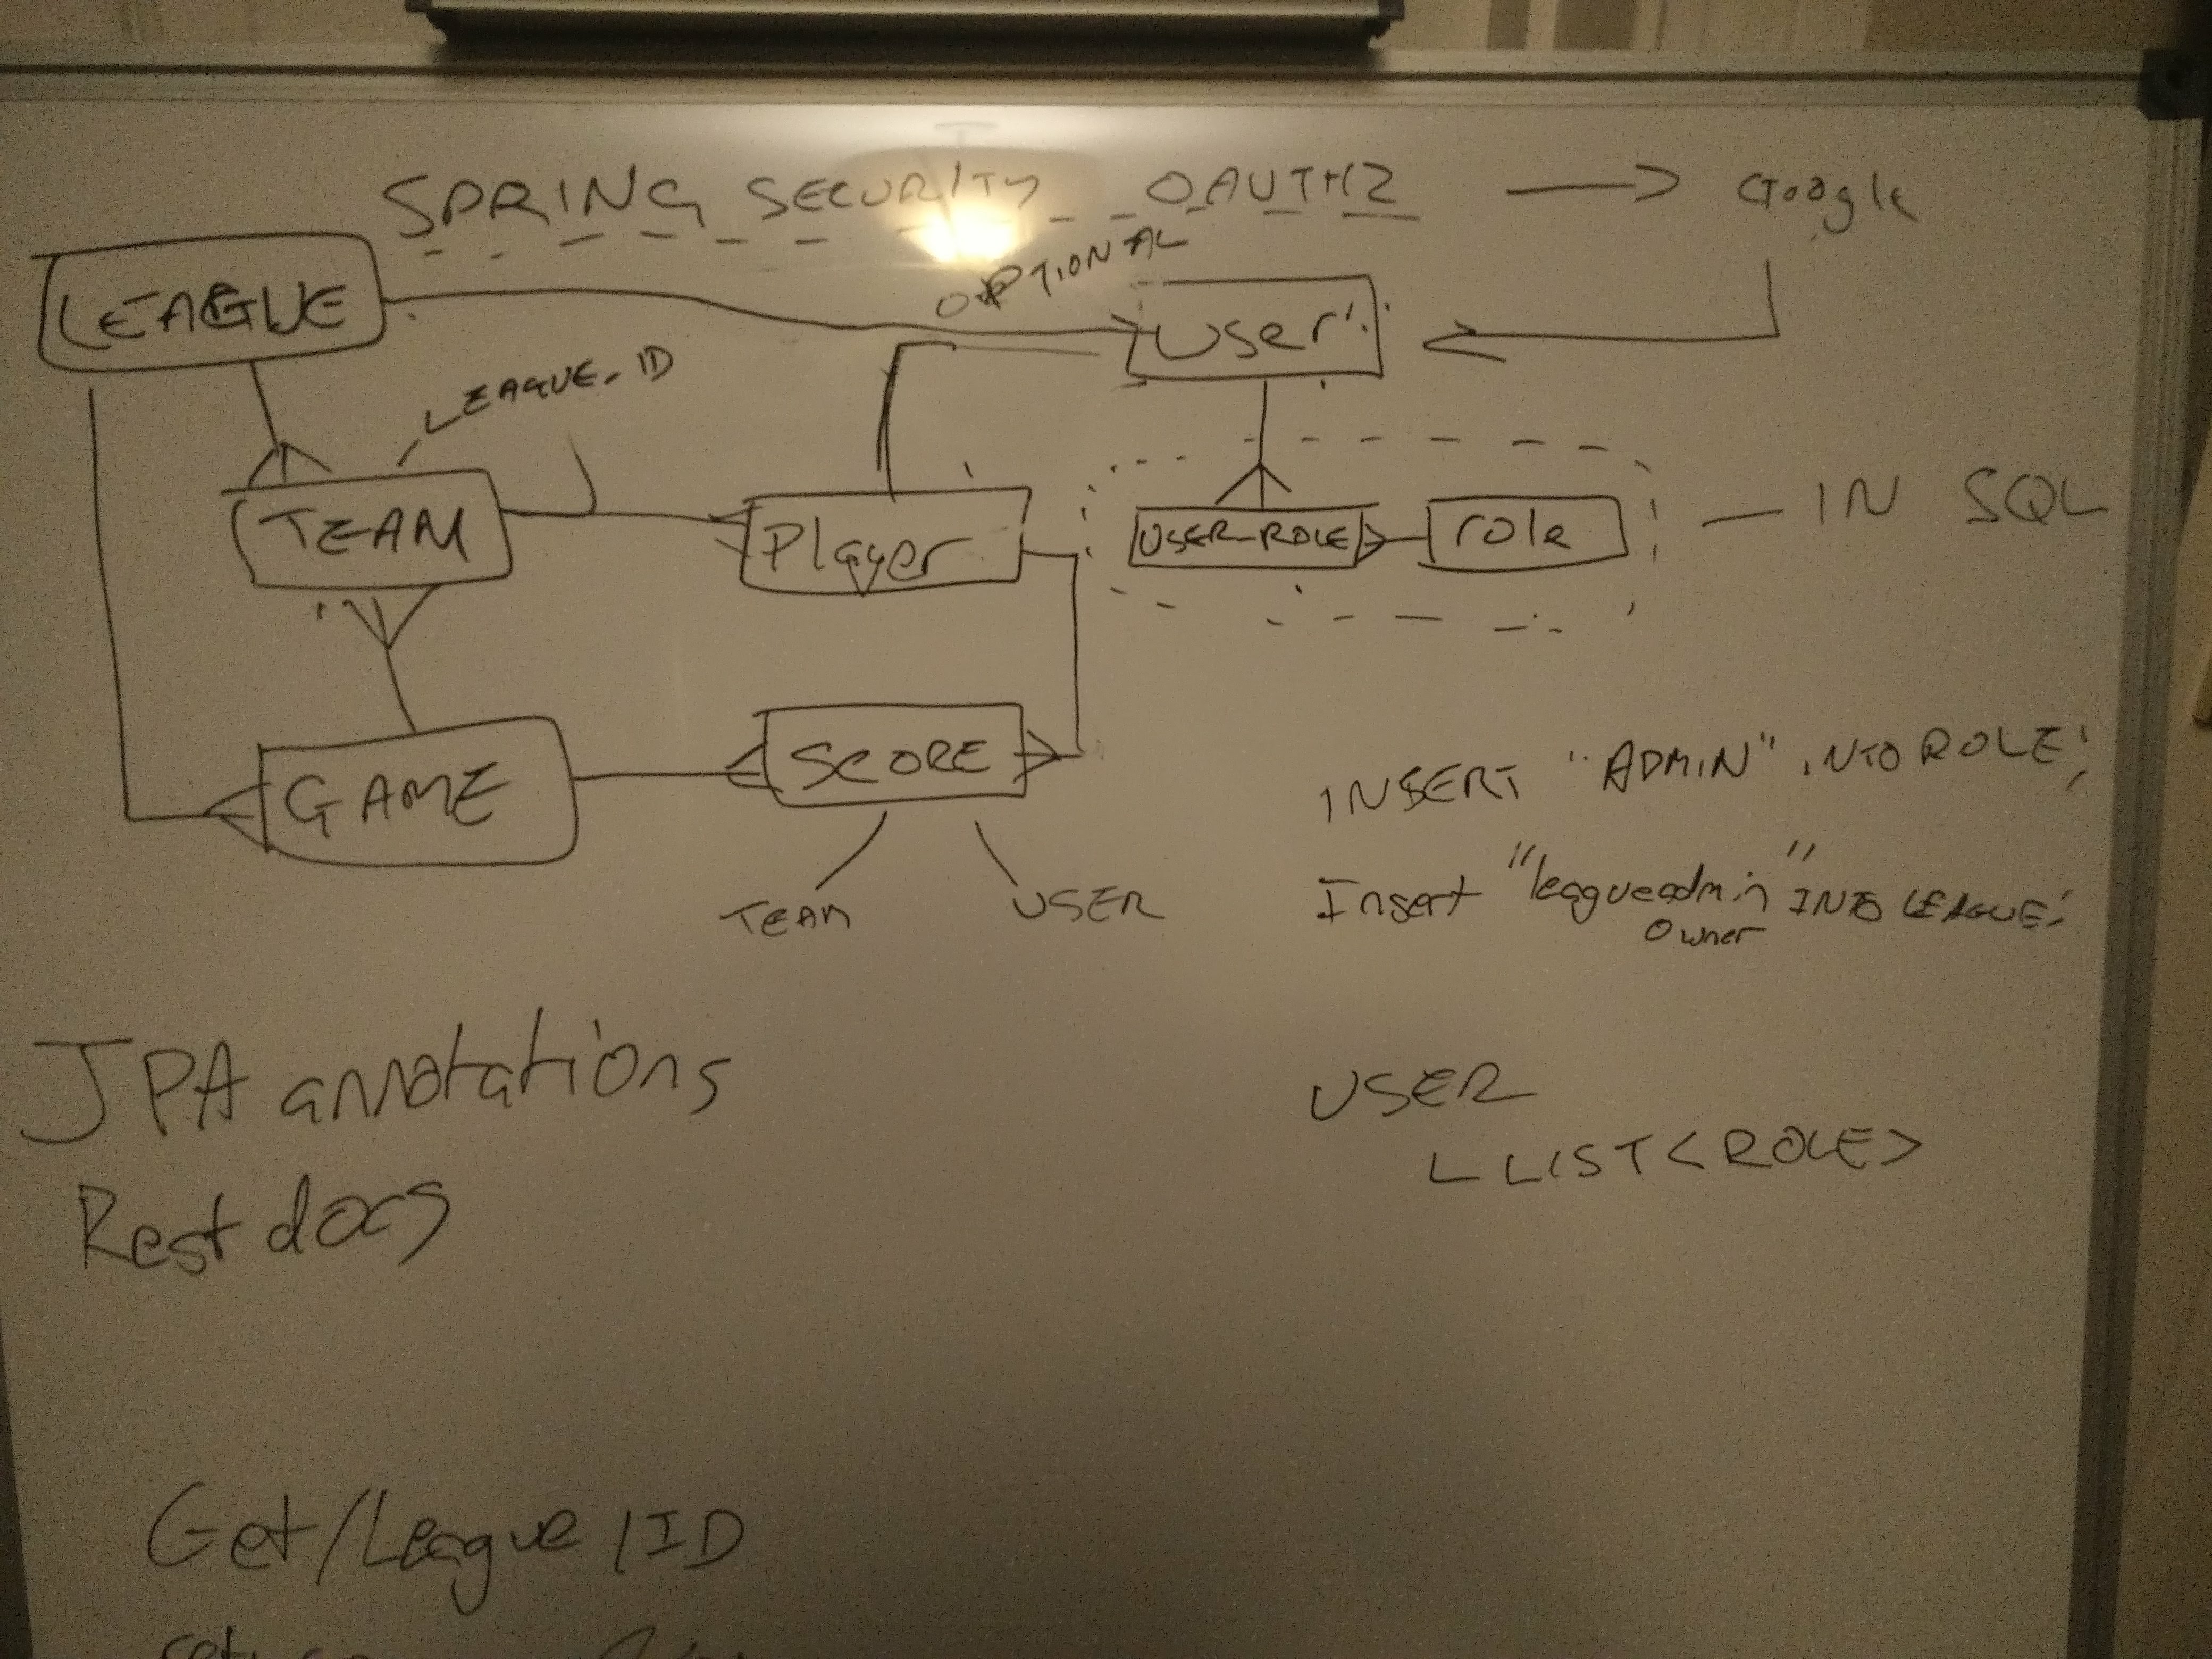 SPRING SECURITY OAUTH2 → Google
OPTIONAL
LEAGUE
User
LEAGUE_ID
TEAM
Player
USER_ROLE
role
— IN SQL
GAME
SCORE
TEAM
USER
INSERT "ADMIN" INTO ROLE;
Insert "leagueadmin" INTO LEAGUE;
Owner
JPA annotations
Rest docs
USER
LIST<ROLE>
Get/League/ID